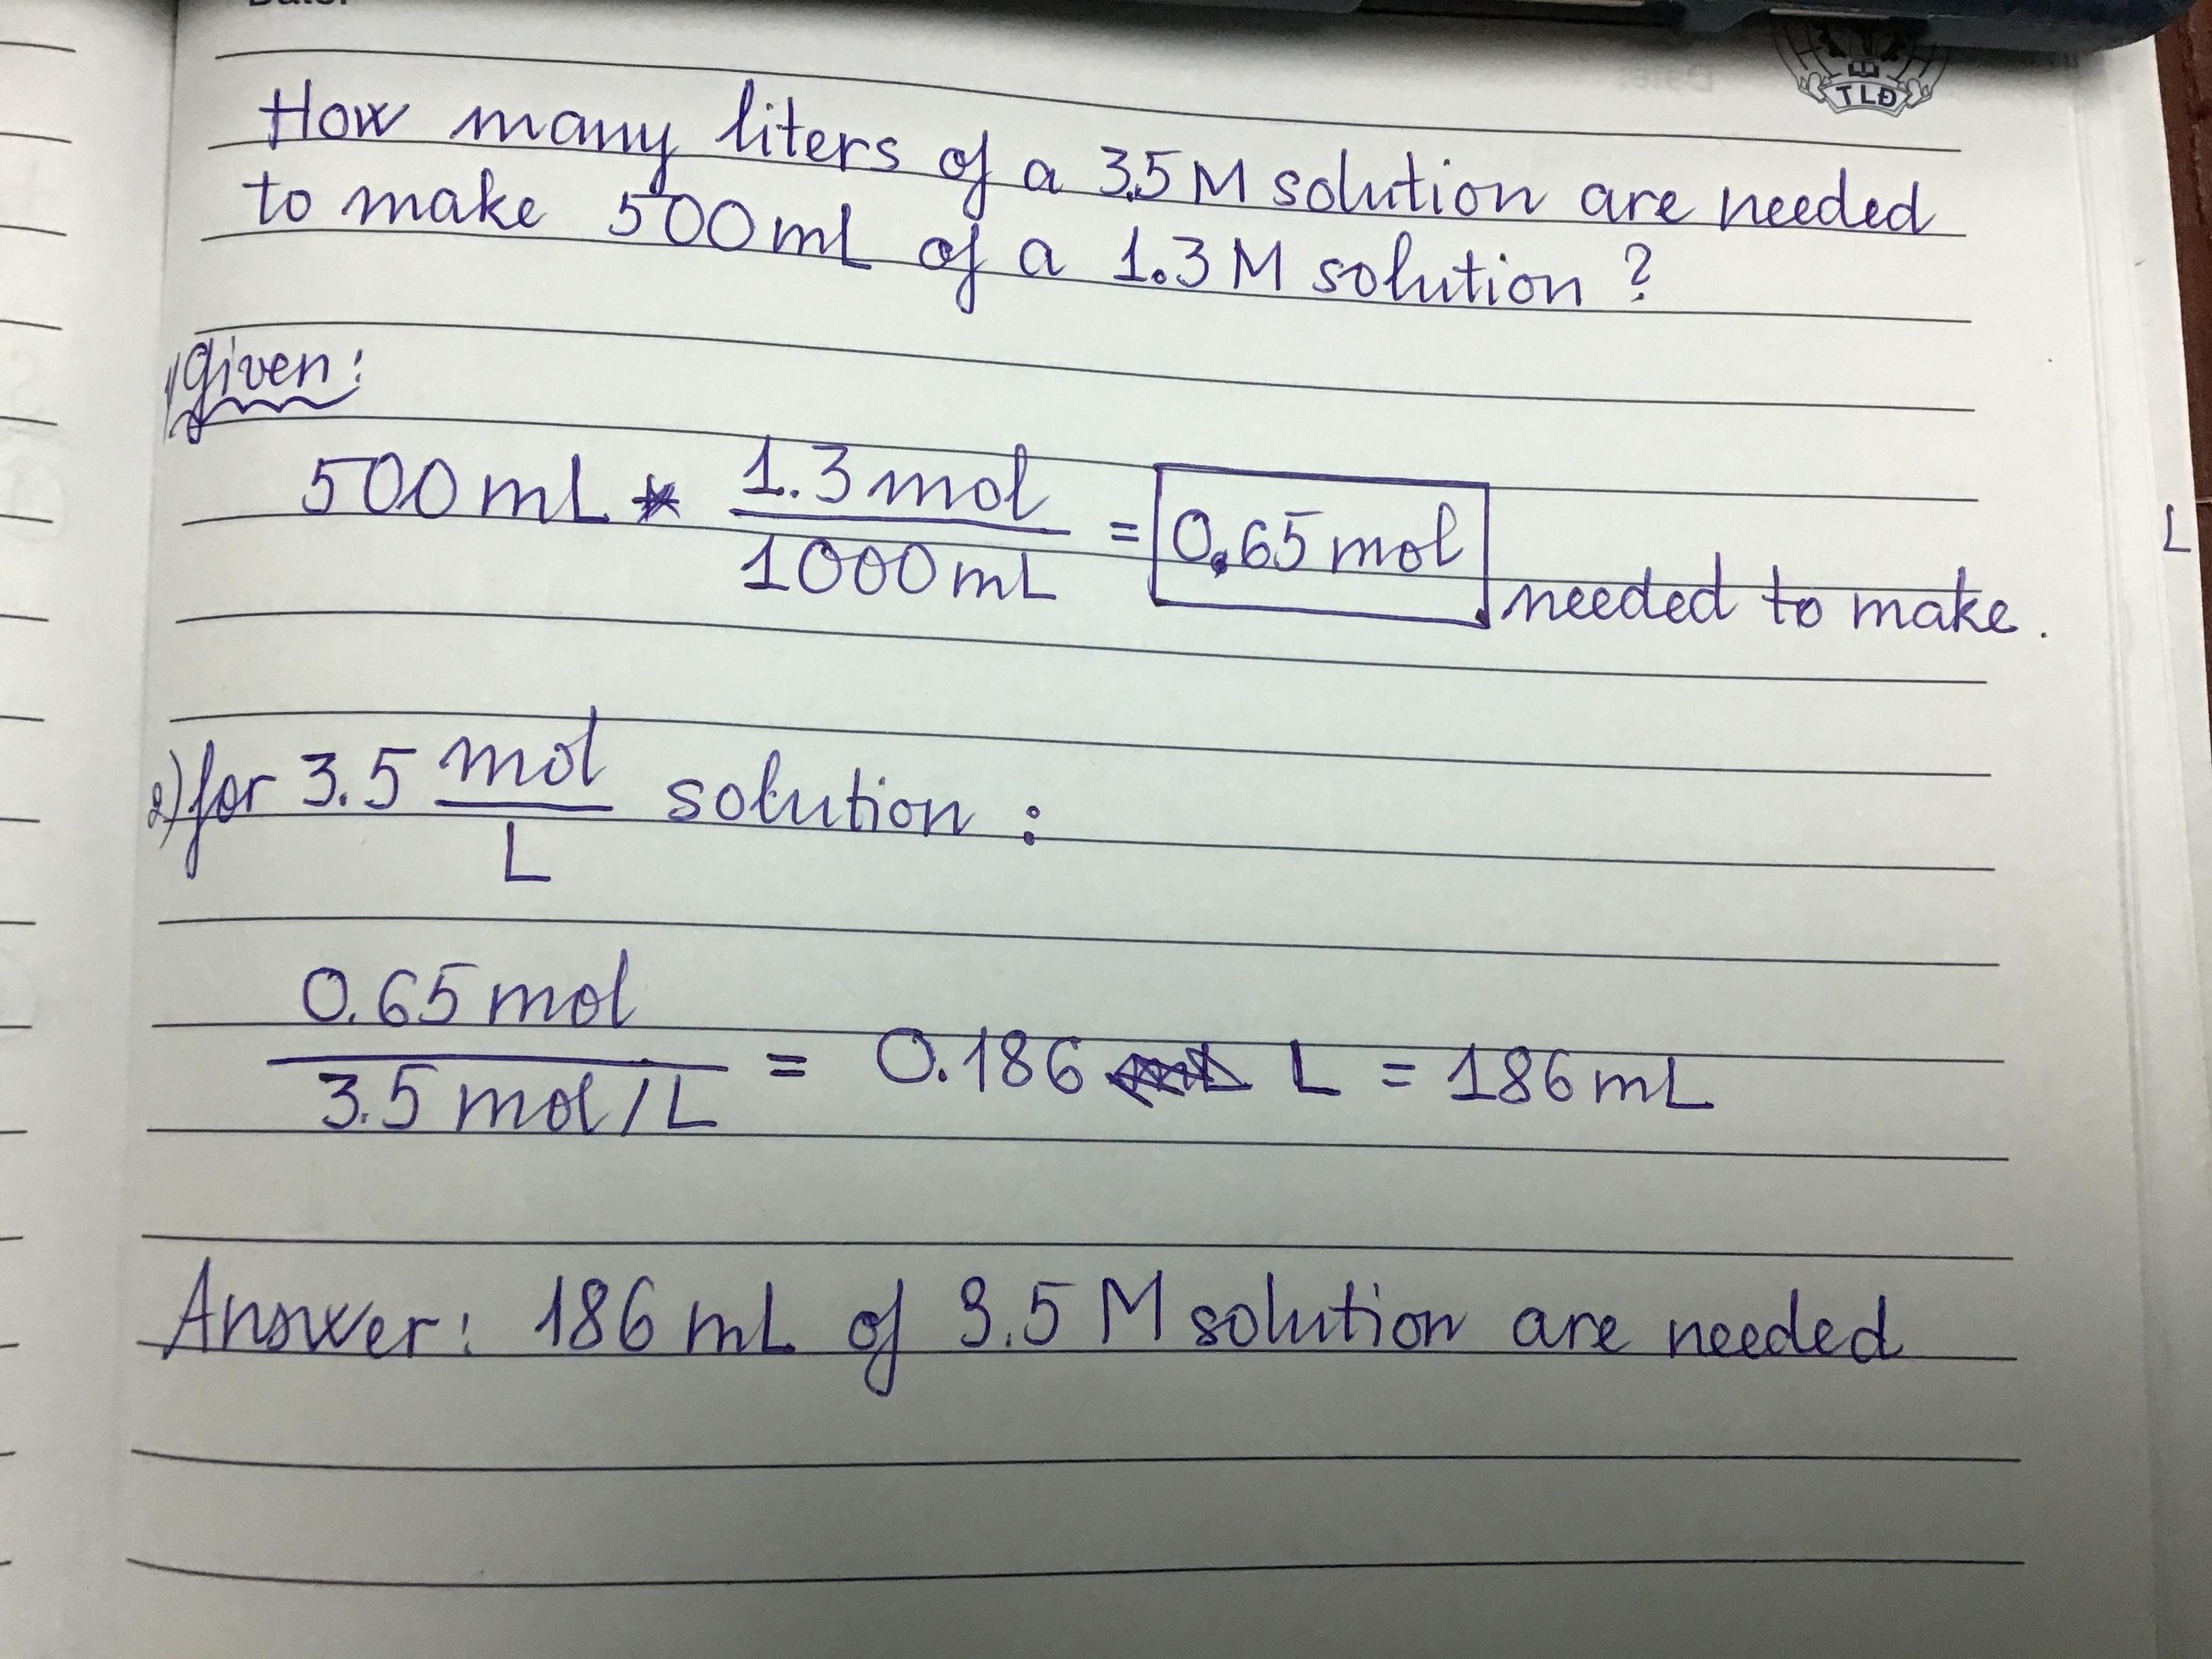 How many liters of a 3.5 M solution are needed
to make 500 mL of a 1.3 M solution ?
1) given:
500 mL * 1.3 mol / 1000 mL = 0.65 mol needed to make.
2) for 3.5 mol / L solution :
0.65 mol / 3.5 mol/L = 0.186 L = 186 mL
Answer: 186 mL of 3.5 M solution are needed
TLĐ
L